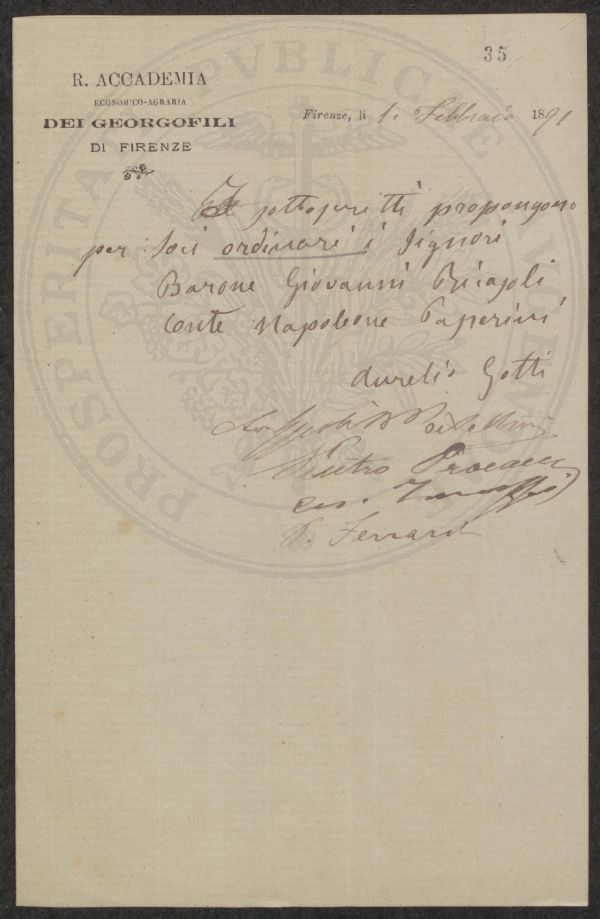 35
R. ACCADEMIA
ECONOMICO-AGRARIA
DEI GEORGOFILI
DI FIRENZE
Firenze, li 1. Febbraio 1891
I sottoscritti propongono
per soci ordinari i Signori
Barone Giovanni Ricasoli
Conte Napoleone Paperini
Aurelio Gotti
Avv
Procacci
Ferrari
PROSPERITATI PVBLICAE